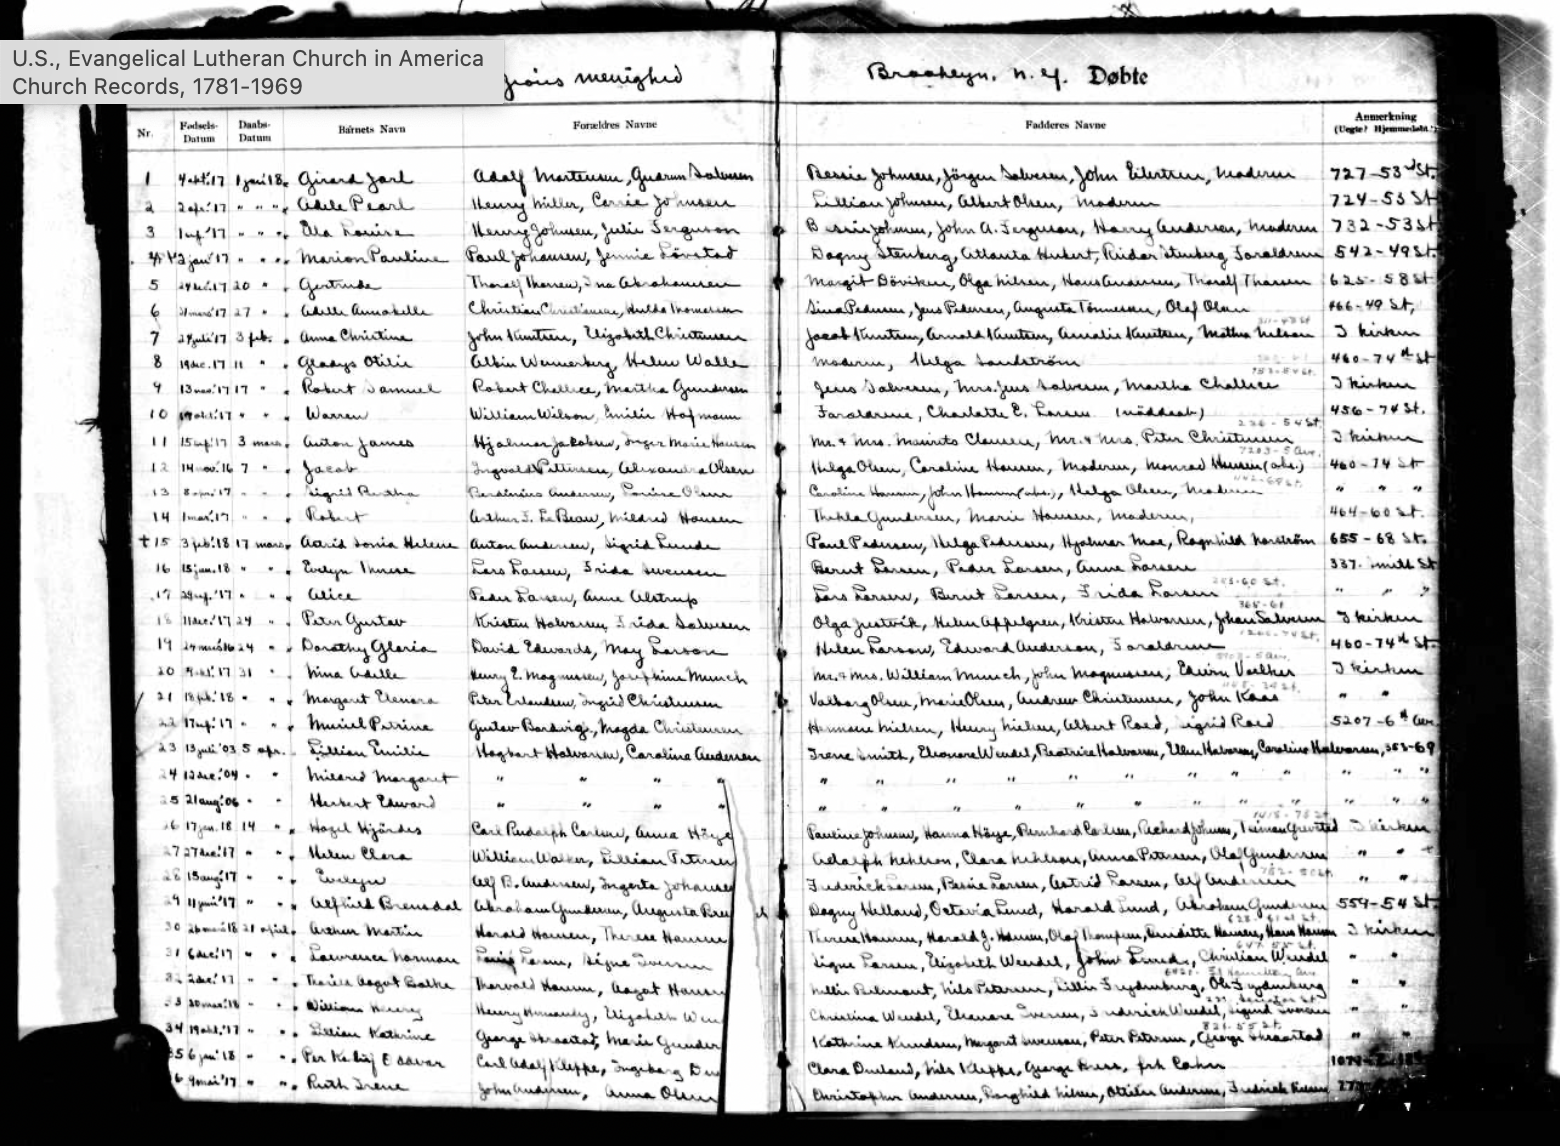 U.S., Evangelical Lutheran Church in America
Church Records, 1781-1969
menighed Brooklyn, N.Y. Døbte
Nr. Fødsels-Datum Daabs-Datum Barnets Navn Forældres Navne Fadderes Navne Anmerkning (Uegte? Hjemmedøbt?)
1 4 okt. '17 1 jan '18 Girard Jarl Adolf Mortensen, Gudrun Salvesen Bessie Johnsen, Jörgen Salvesen, John Eilertsen, Moderen 727-53rd St.
2 2 apr. '17 " " " Adele Pearl Henry Miller, Carrie Johnsen Lillian Johnsen, Albert Olsen, Moderen 724-53 St
3 '17 " " " Ella Louise Henry Johnsen, Julie Ferguson Bessie Johnsen, John A. Ferguson, Harry Andersen, Moderen 732-53 St
4 2 jan '17 " " " Marion Pauline Paul Johansen, Jennie Lövstad Dagny Stenberg, Atlanta Hubert, Reidar Stenberg, Foraldrene 542-49 St.
5 '17 20 " Gertrude Tharalf Tharsen, Ina Abrahamsen Margit Döviken, Olga Nilsen, Hans Andersen, Tharalf Tharsen 625-58 St
6 '17 27 " Adele Annabelle Christian Christiansen, Hulda Thomassen Sina Pedersen, Jens Pedersen, Augusta Tönnessen, Olaf Olsen 466-49 St,
7 24 juli '17 3 feb. Anna Christine John Knutsen, Elizabeth Christensen Jacob Knutsen, Arnold Knutsen, Amalie Knutsen, Mathea Nelson I kirken
8 19 dec. '17 11 " Gladys Otilie Albin Wennerberg, Helen Walle Moderen, Helga Sandström 460-74th St
9 13 nov. '17 17 " Robert Samuel Robert Challice, Martha Gundersen Jens Salvesen, Mrs. Jens Salvesen, Martha Challice I kirken
10 '17 " " Warren William Wilson, Emilie Hofmann Foraldrene, Charlotte E. Larsen (nöddaab) 456-74 St.
11 15 '17 3 mars. Anton James Hjalmar Jakobsen, Inger Marie Hansen Mr. & Mrs. Maurits Clausen, Mr. & Mrs. Peter Christensen I kirken
12 14 nov. 16 7 " Jacob Ingvald Pettersen, Alexandra Olsen Helga Olsen, Caroline Hansen, Moderen, Monrad Hansen (abs.) 460-74 St
13 '17 " " Sigrid Bertha Berdinius Andersen, Louise Olsen Caroline Hansen, John Hansen (abs.), Helga Olsen, Moderen " " "
14 1 mar. '17 " " Robert Arthur F. LeBeau, Mildred Hansen Thekla Gundersen, Marie Hansen, Moderen, 464-60 St.
15 3 feb. '18 17 mars. Astrid Sonia Helene Anton Andersen, Sigrid Lunde Paul Pedersen, Helga Pedersen, Hjalmar Moe, Ragnhild Norström 655-68 St.
16 15 jan. 18 " " Evelyn Therese Lars Larsen, Frida Swensen Bernt Larsen, Peder Larsen, Anne Larsen 337. St
17 '17 " " Alice Peder Larsen, Anne Alstrup Lars Larsen, Bernt Larsen, Frida Larsen " " "
18 11 dec. '17 24 " Peter Gustav Kristen Halvorsen, Frida Salvesen Olga Jestvik, Helen Appelgren, Kristen Halvorsen, Johan Salvesen I kirken
19 16 24 " Dorothy Gloria David Edwards, May Larson Helen Larson, Edward Anderson, Foraldrene 460-74th St.
20 '17 31 " Nina Adelle Henry E. Magnussen, Josephine Munch Mr. & Mrs. William Munch, John Magnussen, Edwin Voelker I kirken
21 18 feb. '18 " " Margaret Elenora Peter Erlandsen, Ingrid Christensen Valborg Olsen, Marie Olsen, Andrew Christensen, John Kaas " "
22 17 '17 " " Muriel Petrine Gustav Bordvig, Magda Christensen Hermane Nielsen, Henry Nielsen, Albert Roed, Sigrid Roed 5207-6th Ave
23 13 juli '03 5 apr. Lillian Emilie Hagbart Halvorsen, Caroline Andersen Irene Smith, Eleonore Wendel, Beatrice Halvorsen, Ellen Halvorsen, Caroline Halvorsen, 353-69
24 12 dec. '04 " " Mildred Margaret " " " " " " " " " " " " "
25 21 aug. '06 " " Herbert Edward " " " " " " " " " " " " "
26 17 jan. 18 14 " Hazel Hjördes Carl Rudolph Carlsen, Anna Höye Pauline Johnsen, Hanna Höye, Bernhard Carlsen, Richard Johnsen, I kirken
27 27 dec. '17 " " Helen Clara William Walker, Lillian Petersen Adolph Nehlson, Clara Nehlson, Anna Petersen, Olaf Gundersen " "
28 15 aug '17 " " Evelyn Alf B. Andersen, Ingerta Johansen Frederick Larsen, Bessie Larsen, Astrid Larsen, Alf Andersen " "
29 11 juni '17 " " Alfhild Brensdal Abraham Gundersen, Augusta Dagny Helland, Octavia Lund, Harald Lund, Abraham Gundersen 559-54 St.
30 18 21 april. Arthur Martin Harald Hansen, Therese Hansen Therese Hansen, Harald J. Hansen, Olaf Thompsen, Benditte Hansen, Hans Hansen I kirken
31 6 dec. '17 " " Lawrence Norman Larsen, Signe Iversen Signe Larsen, Elizabeth Wendel, John Lunde, Christian Wendel " "
32 2 dec. '17 " " Aagot Thorvald Hansen, Aagot Hansen Nils Petersen, Lillie Frydenburg, Ole Frydenburg " "
33 '18 " " William Henry Henry Elizabeth Christina Wendel, Eleanore Iversen, Frederick Wendel, Sigurd Iversen " "
34 19 okt. '17 " " Lillian Kathrine George Skaartad, Marie Gunder Kathrine Knudsen, Margaret Swenson, Peter Petersen, George Skaartad " "
35 6 jan '18 " " Per Edvar Carl Adolf Kleppe, Ingeborg Clara Nils Kleppe, George
6 9 mai '17 " " Ruth Irene John Andersen, Anna Olsen Christopher Andersen, Ragnhild Nilsen, Ottilie Andersen, Fredrick